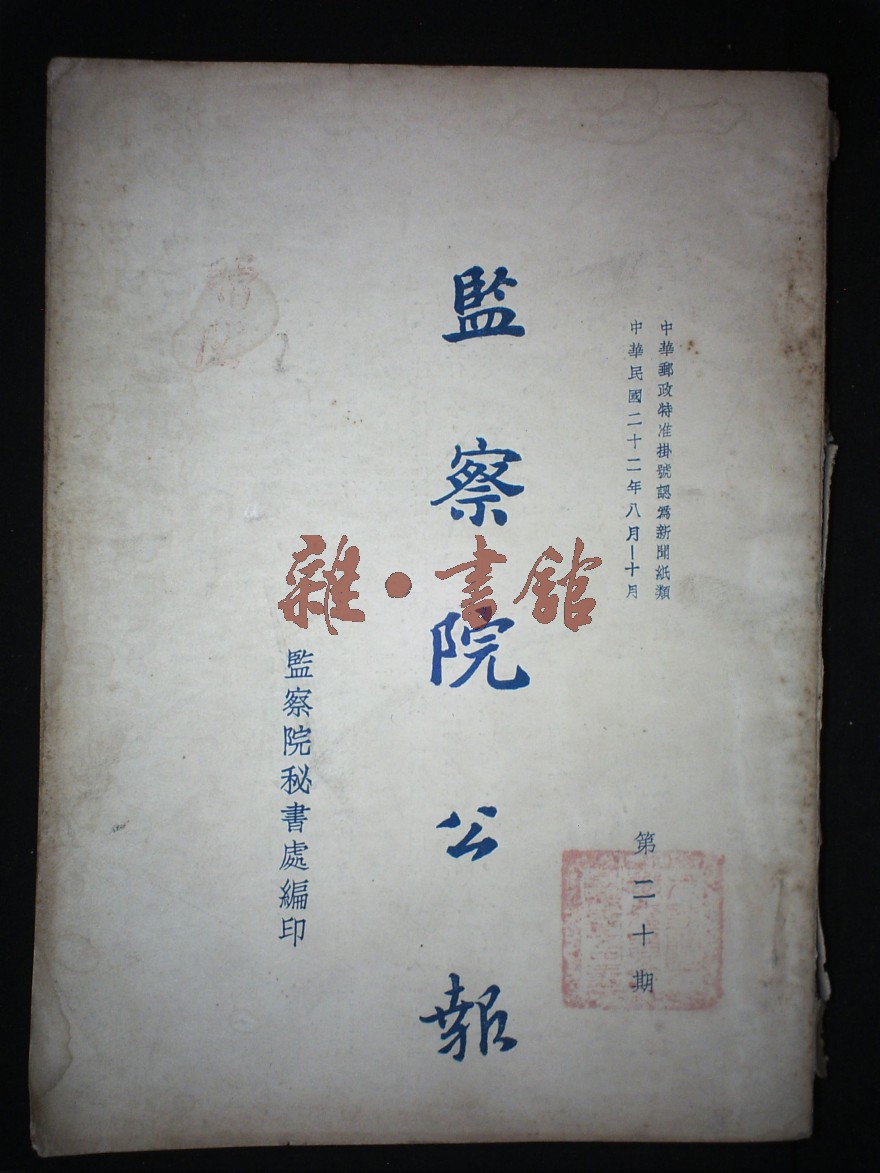 中華郵政特准掛號認爲新聞紙類
中華民國二十二年八月－十月
第二十期
監察院公報
監察院秘書處編印
雜・書舘